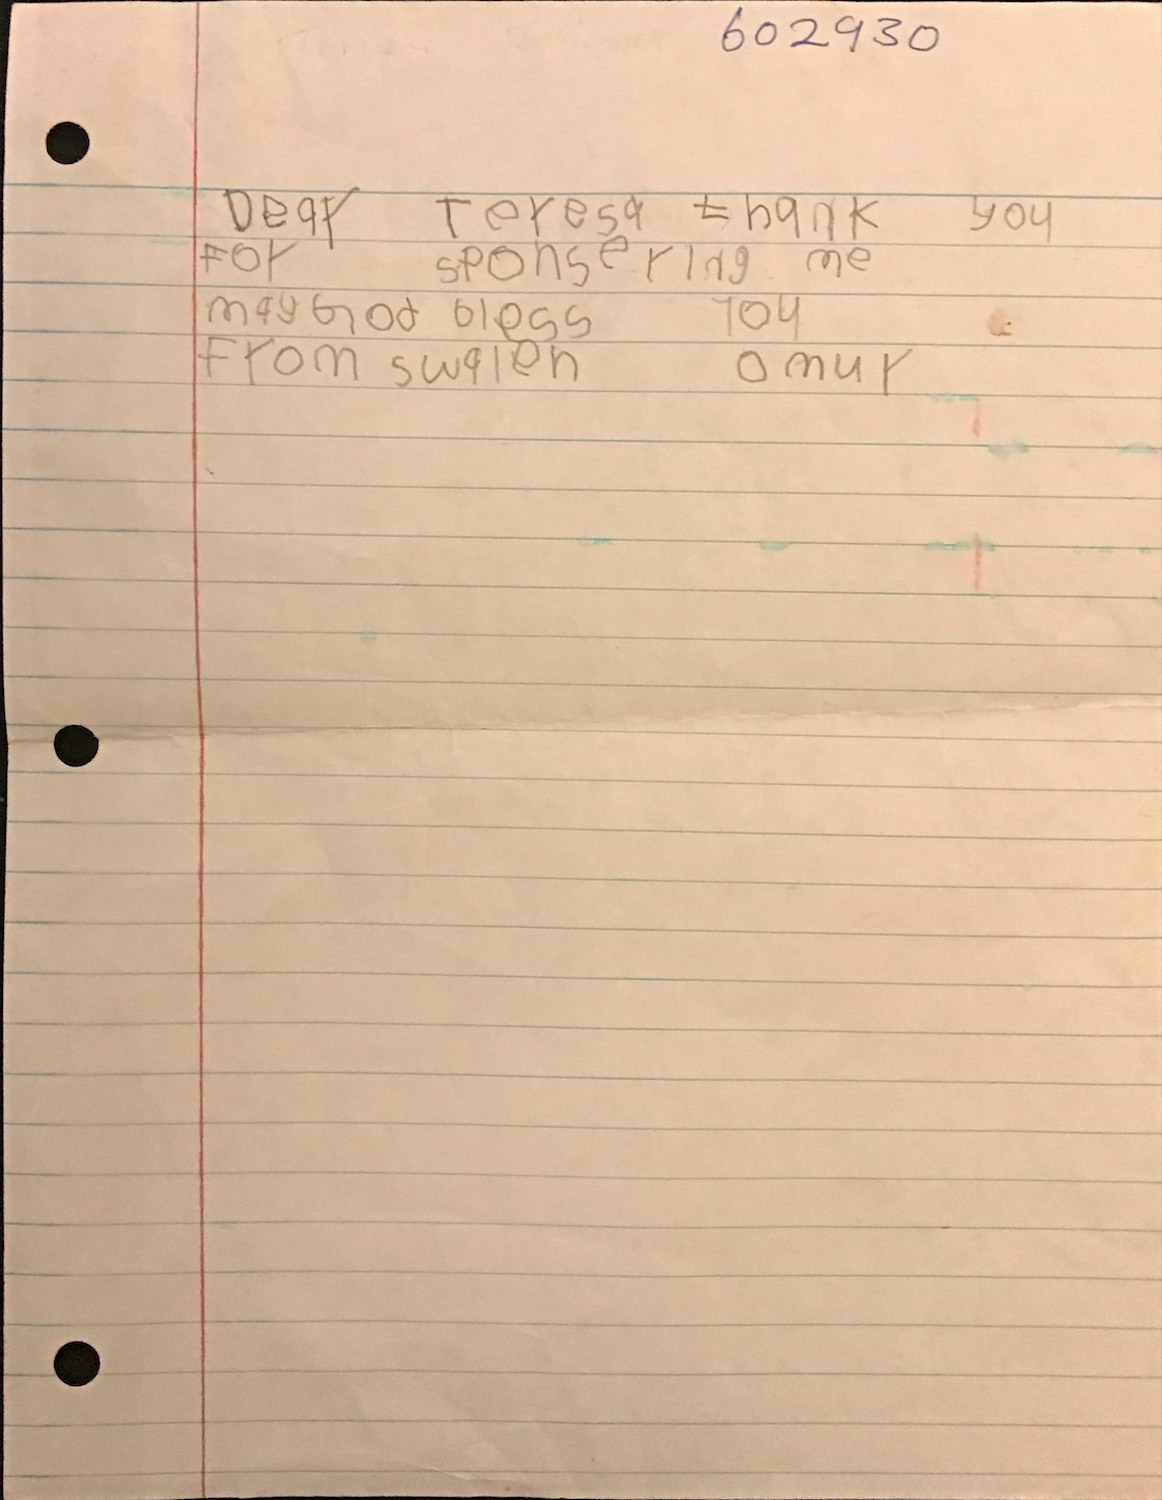 602930
Dear Teresa thank you
For sponsering me
may God bless you
From swalen omur